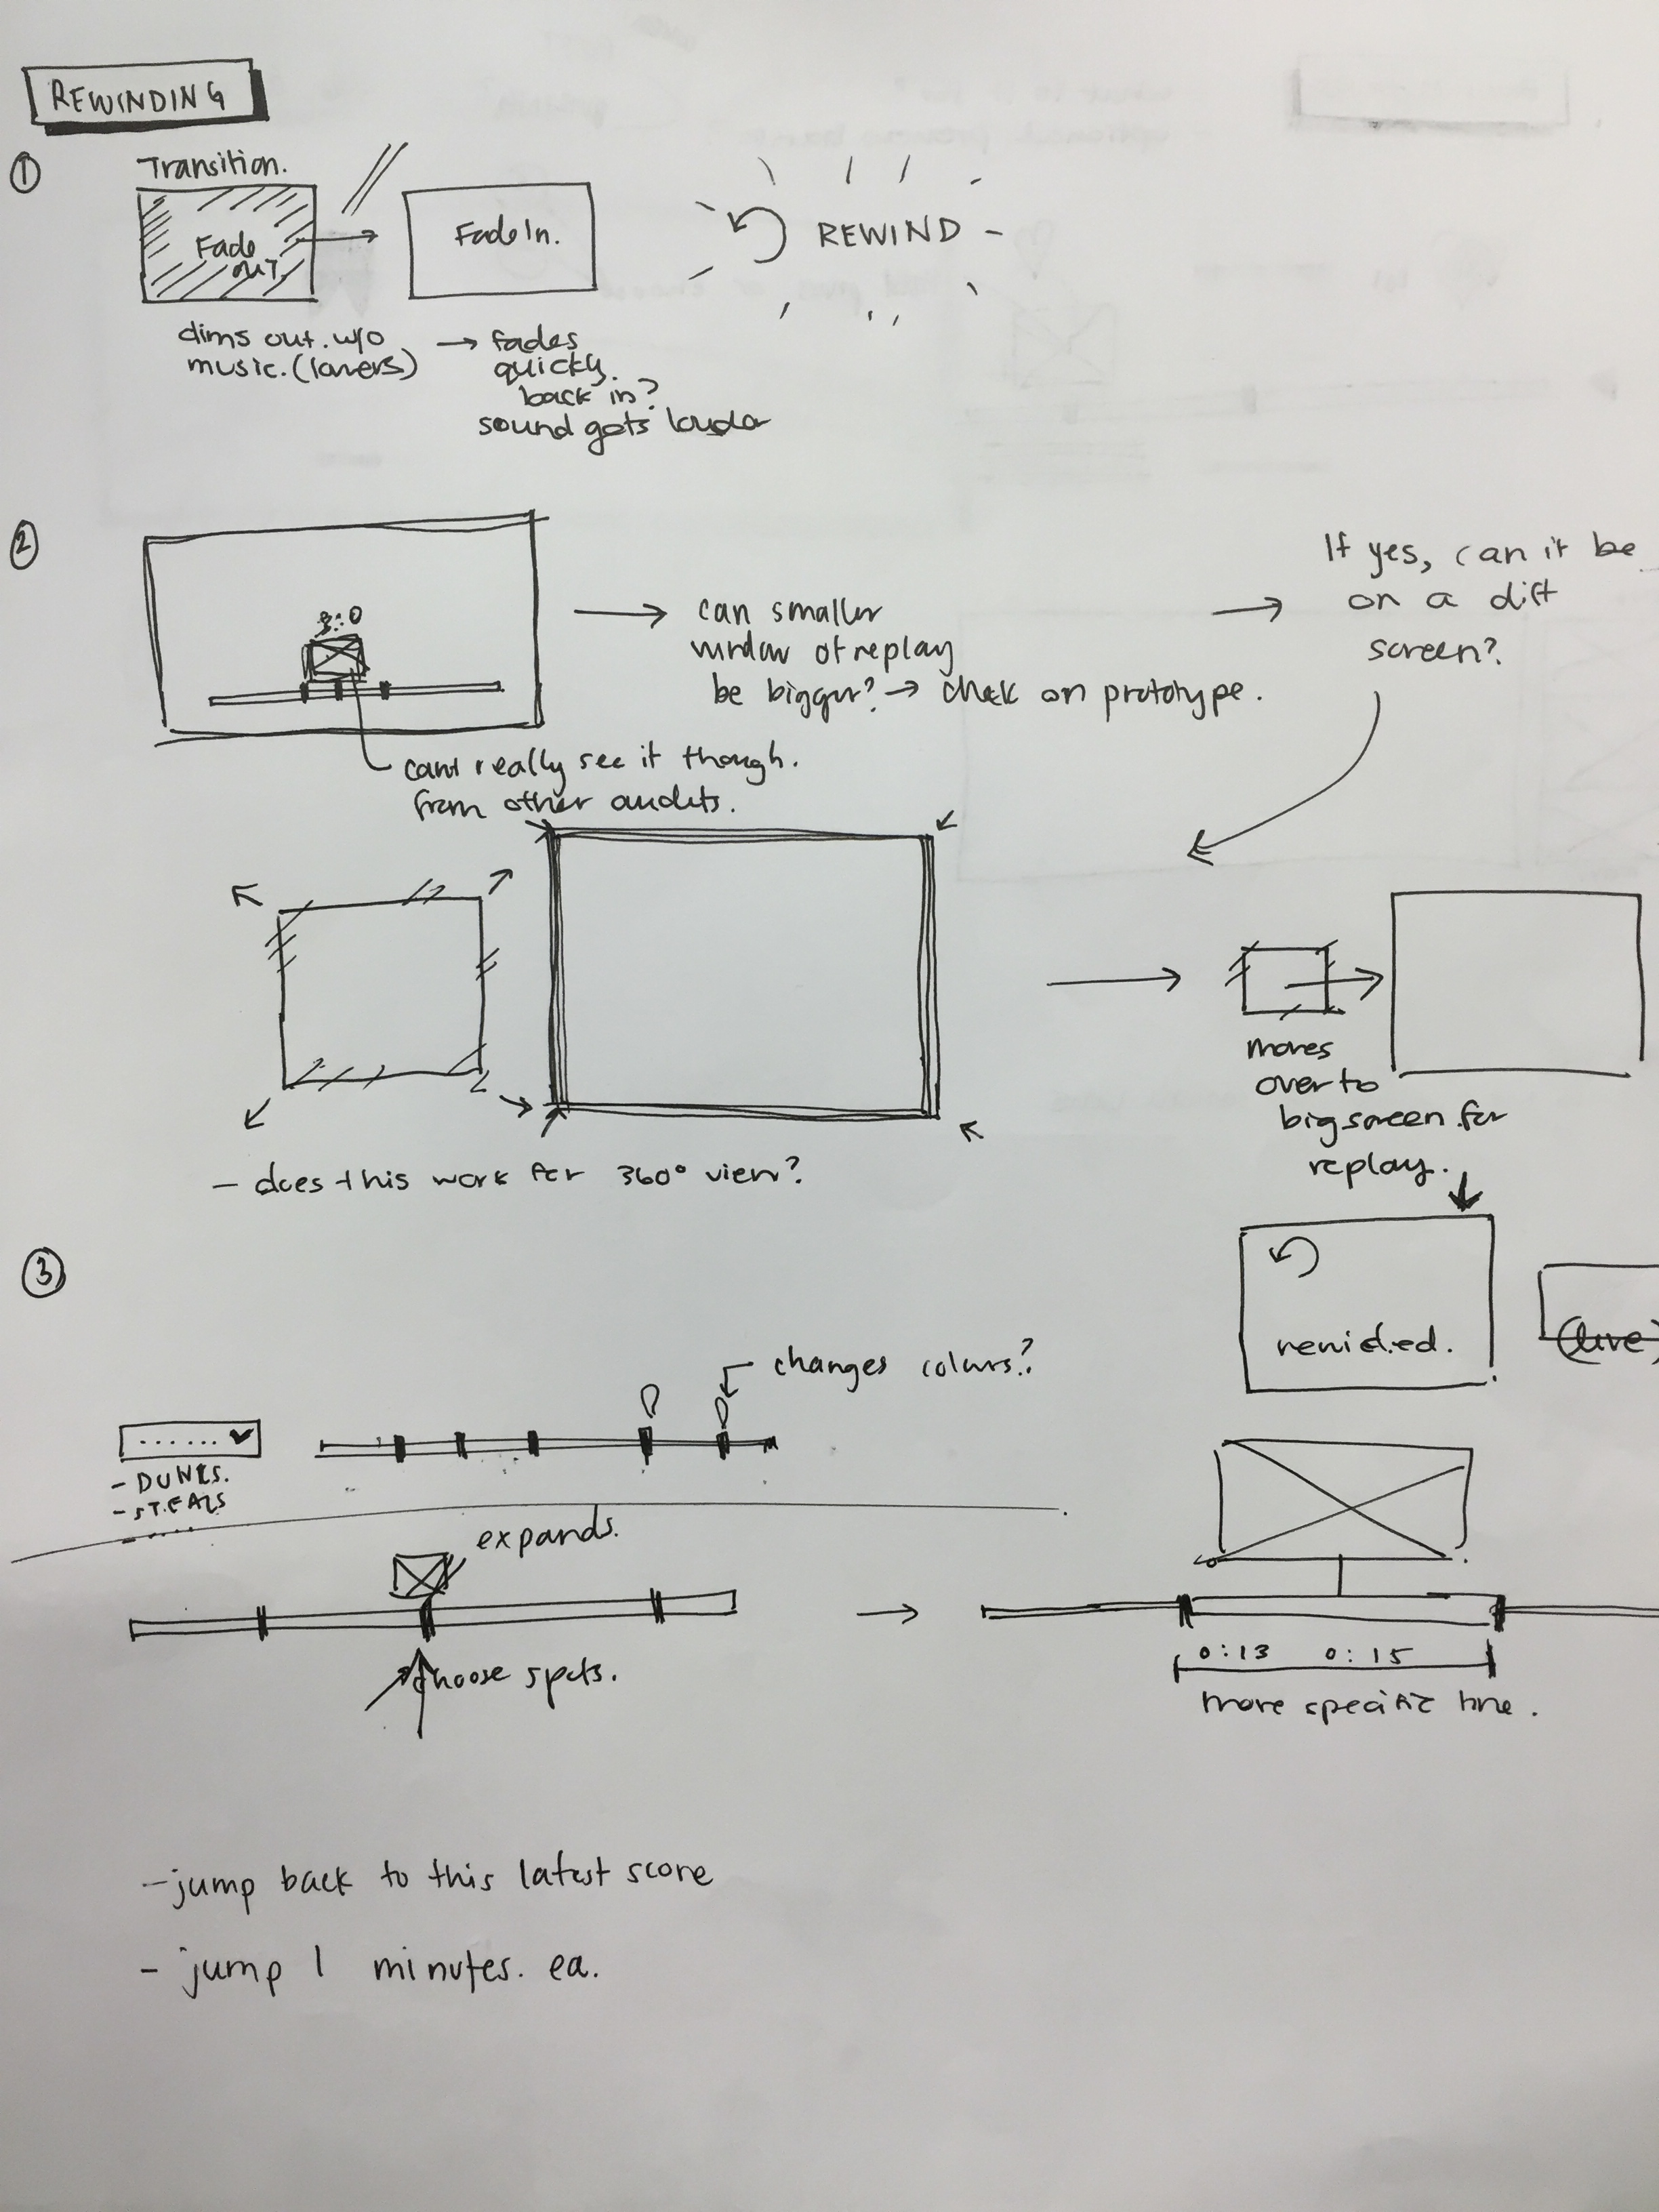 REWINDING
1
Transition.
Fade
out.
Fade In.
REWIND -
dims out. w/o
music. (lowers)
→ fades
quickly.
back in?
sound gets louder
2
3:0
can smaller
window of replay
be bigger? → check on prototype.
If yes, can it be
on a diff
screen?
cant really see it though.
from other audits.
- does this work for 360° view?
moves
over to
big screen for
replay.
3
(live)
changes colours?
......
- DUNKS.
- STEALS
....
expands.
choose spots.
0:13 0:15
more specific time.
- jump back to this latest score
- jump 1 minutes. ea.